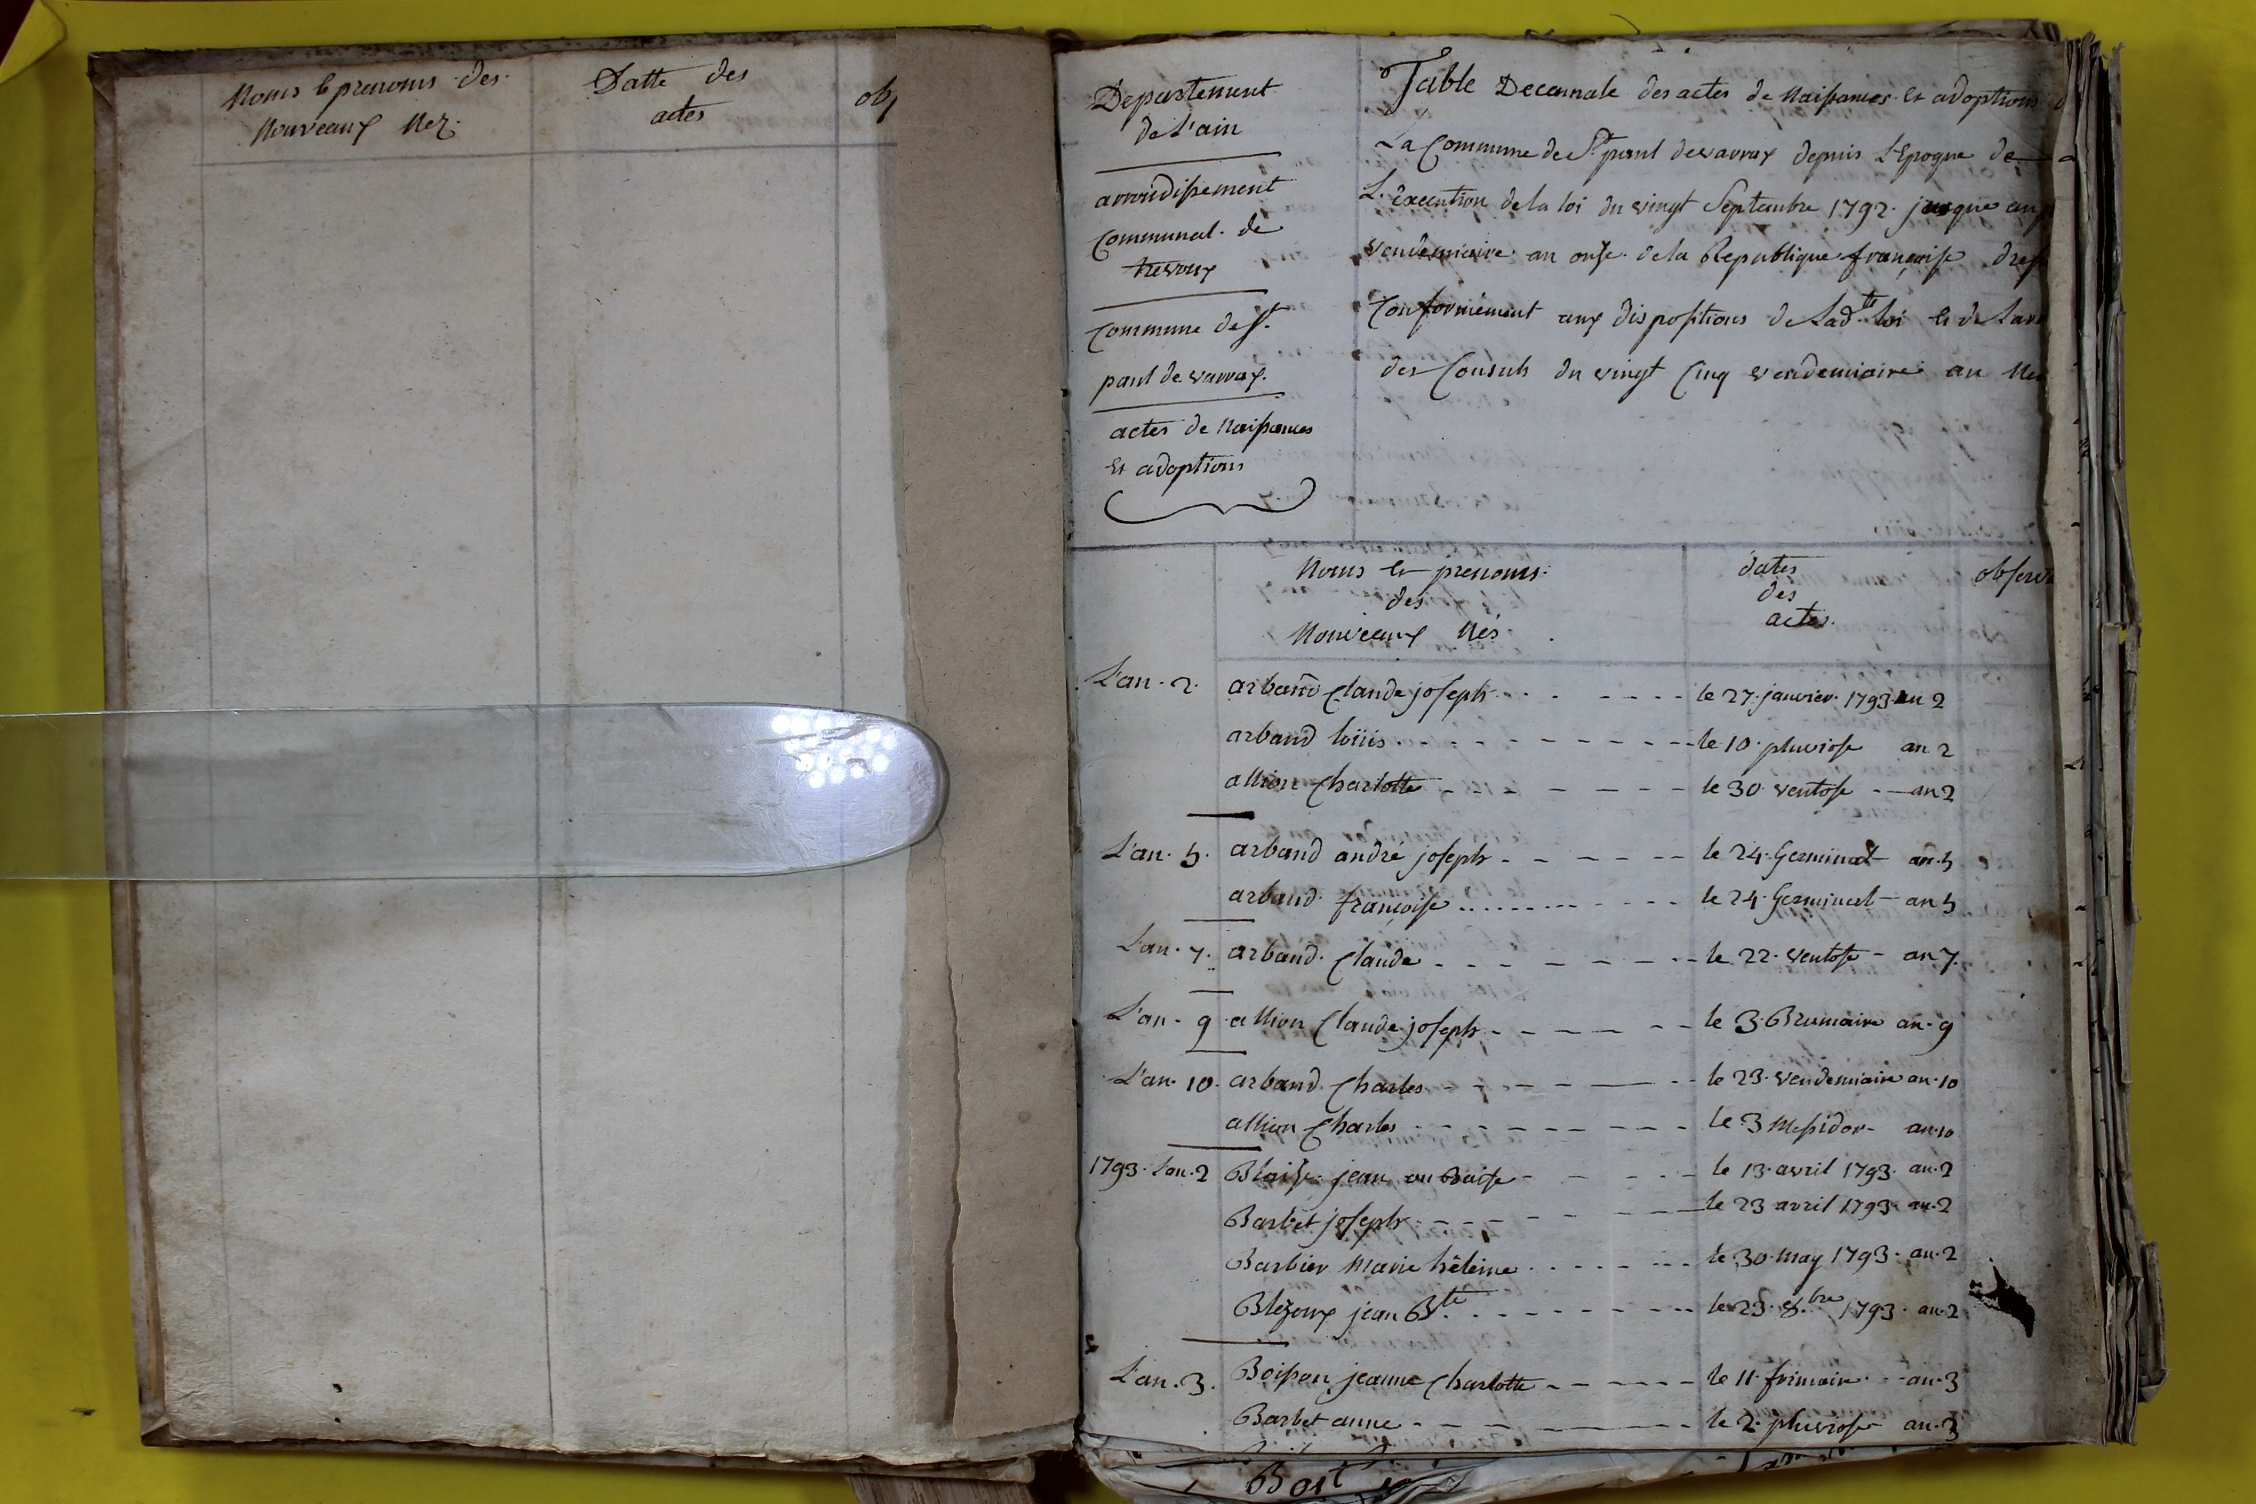 Noms & prenoms des
Nouveaux Nez.
Datte des
actes
obs
Departement
de L'ain
arrondissement
Communal. de
trevoux
Commune de St.
paul de varrax.
actes de Naissances
Et adoptions
Table Decennale des actes de Naissances Et adoptions d
La Commune de St. paul devarrax depuis L'Epoque de
L'execution de la loi du vingt Septembre 1792. jusque au
vendemiaire an onze de la Republique françoise dres
Conformément aux dispositions de Ladte. loi & de Larr
des Consuls du vingt Cinq vendemiaire an Neu
Noms & prenoms.
des
Nouveaux Nés
dates
des
actes.
observ
L'an. 2. arband Claude joseph - - - - le 27. janvier. 1793. an 2
arband loüis - - - - le 10. pluviose an 2
allion Charlotte - - - - le 30 ventose - an 2
L'an. 5. arband andré joseph - - - - le 24. Germinal an. 5
arband françoise - - - - le 24. Germinal an. 5
L'an. 7. arband. Claude - - - - le 22. ventose - an 7.
L'an. 9 allion Claude joseph - - - - le 3. Brumaire an. 9
L'an. 10. arband. Charles - - - - le 23. vendemiaire an. 10
allion Charles - - - - le 3 Messidor - an. 10
1793. L'an. 2 Blaise jean ou Baise - - - - le 13. avril 1793. an. 2
Barbet joseph - - - - le 23 avril 1793. an. 2
Barbier Marie héleine - - - - le 30. may 1793. an. 2
Blezoux jean Bte. - - - - le 23. 8.bre 1793. an. 2
L'an. 3. Boisson jeanne Charlotte - - - - le 11. frimaire - an. 3
Barbet anne - - - - le 2. pluviose an. 3